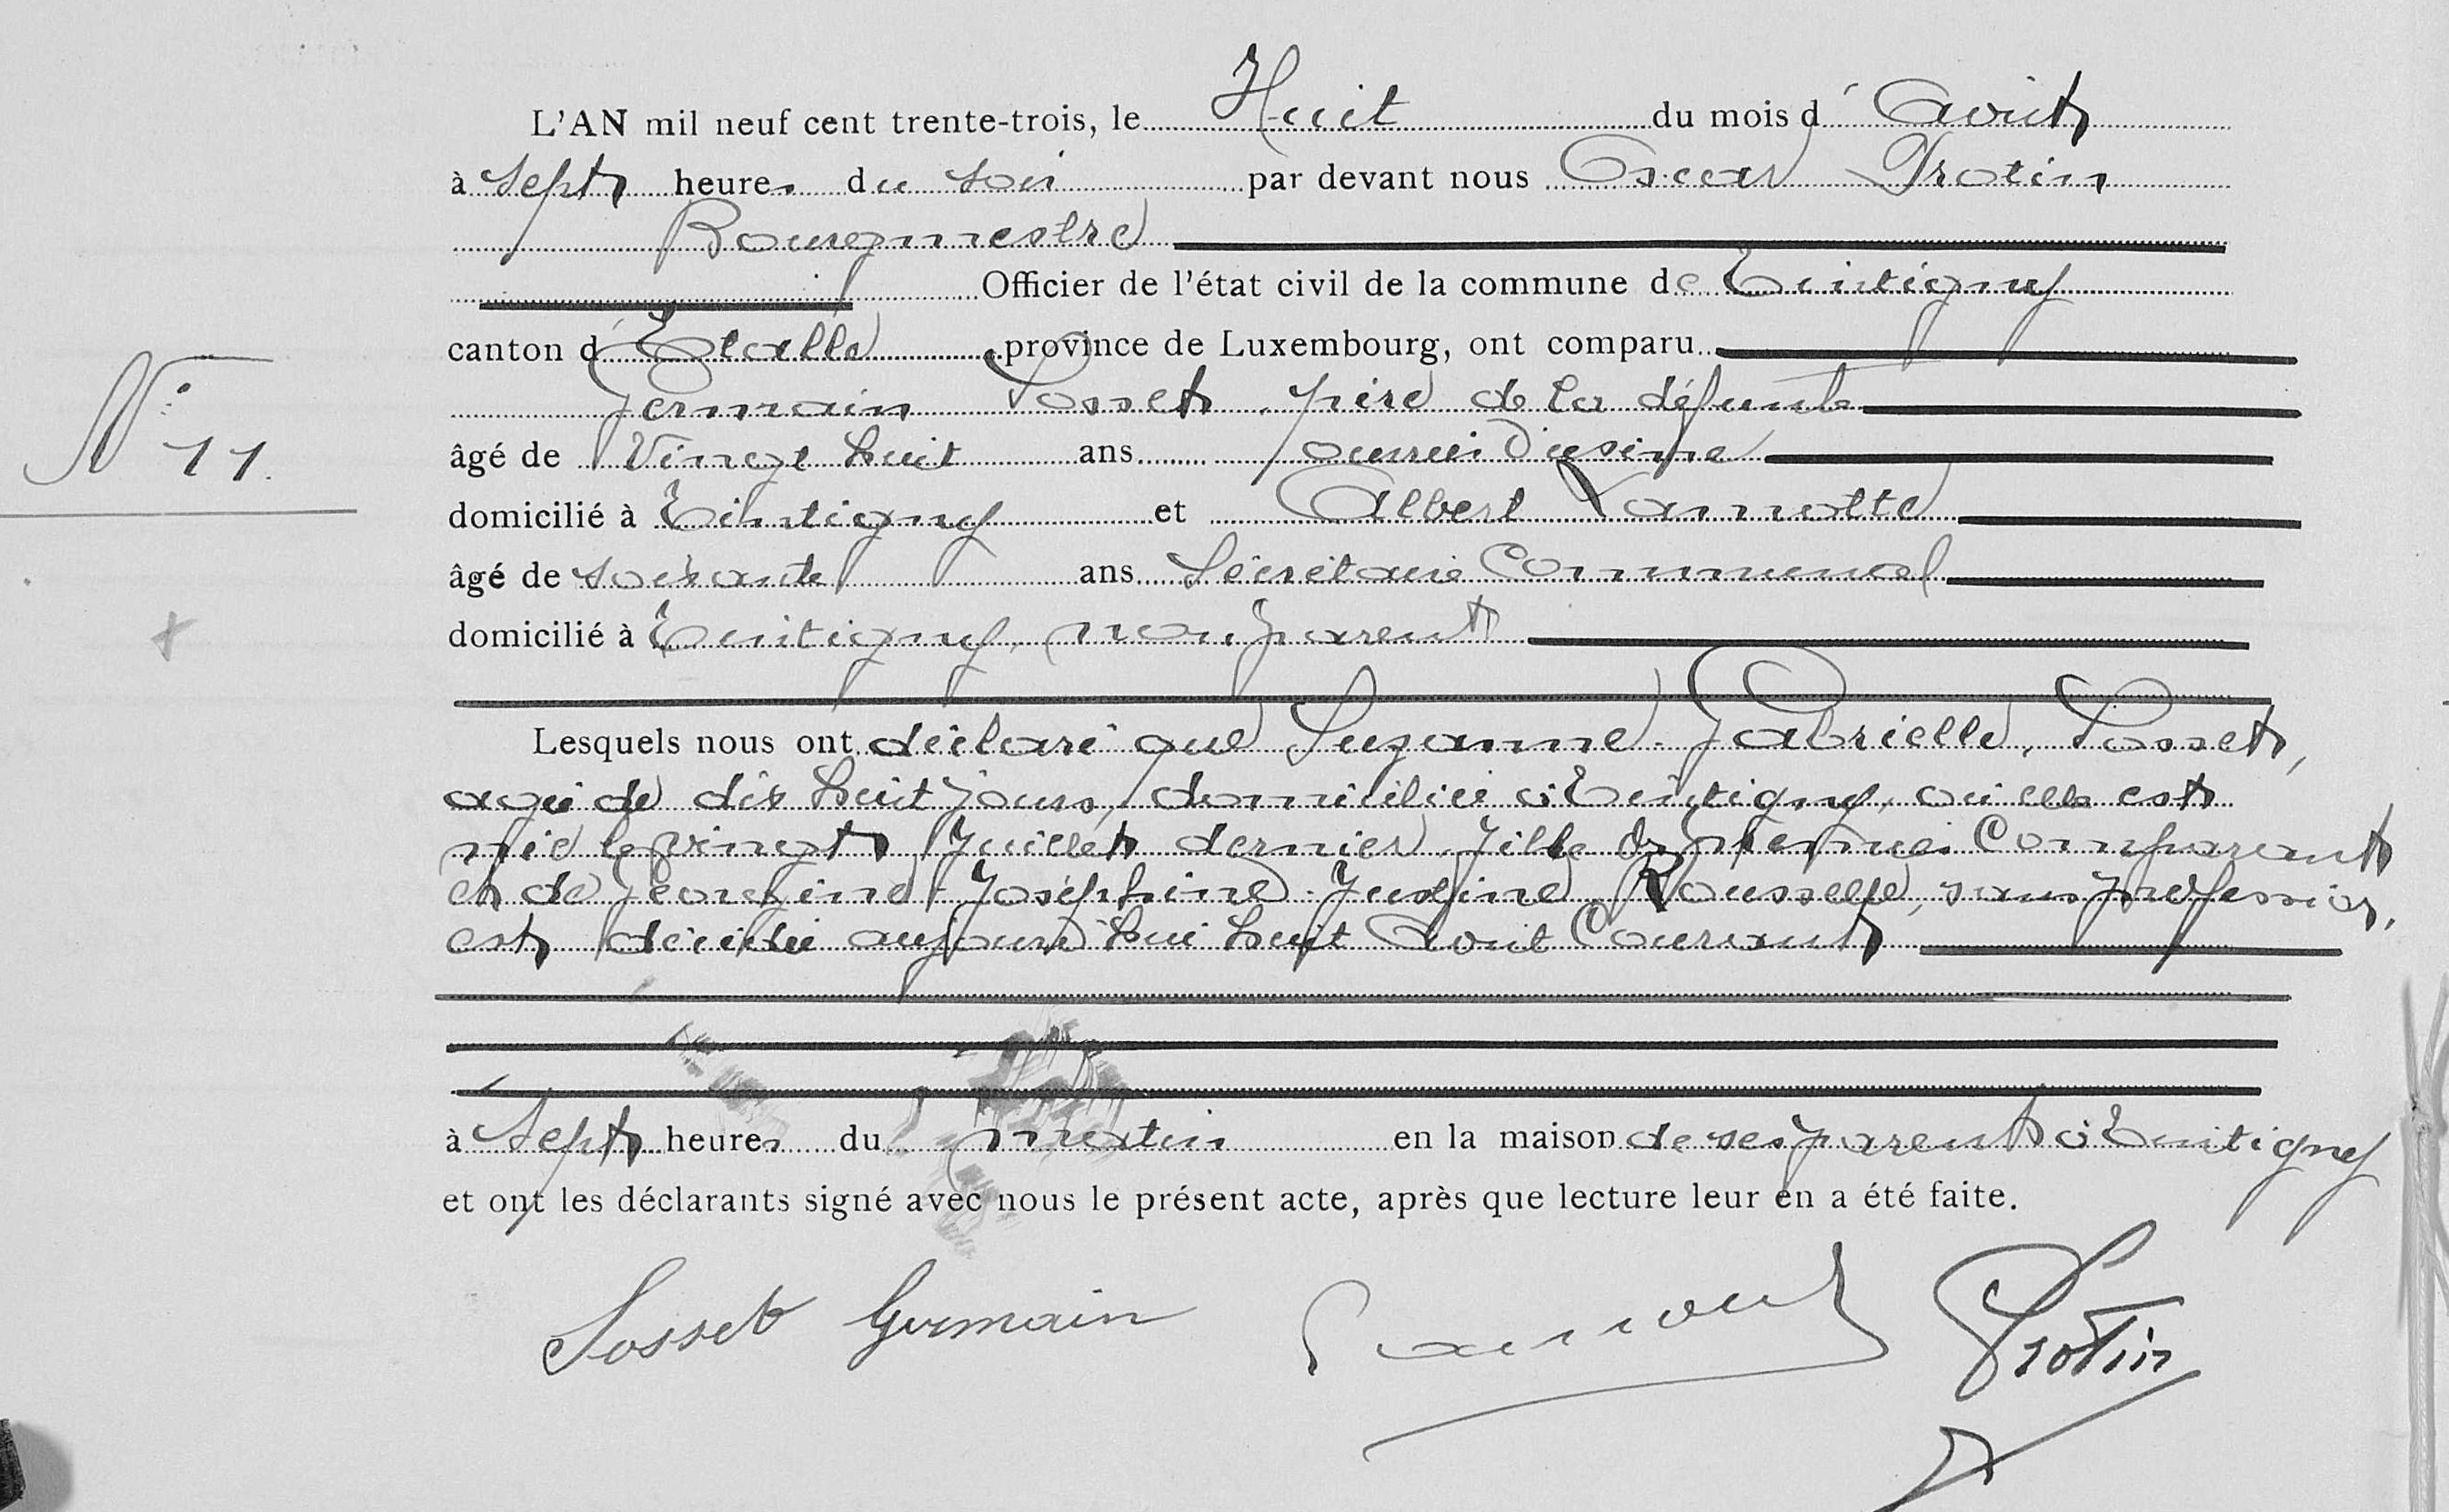 L'AN mil neuf cent trente-trois, le Huit du mois d' Août
à sept heures du soir par devant nous Oscar Protin
Bourgmestre
Officier de l'état civil de la commune de Tintigny
canton d'Etalle province de Luxembourg, ont comparu
Germain Sosset, père de la défunte
N° 11.
âgé de Vingt huit ans ouvrier d'usine
domicilié à Tintigny et Albert Lamotte
âgé de soixante ans Secrétaire Communal
domicilié à Tintigny, non parent
Lesquels nous ont déclaré que Suzanne Gabrielle, Sosset,
agée de dix huit jours, domiciliée à Tintigny, où elle est
née le vingt Juillet dernier, fille du premier Comparant
et de Georgine Joséphine Justine Rousselle, sans profession,
est décédée aujourd'hui huit Août Courant
à Sept heures du matin en la maison de ses parents à Tintigny
et ont les déclarants signé avec nous le présent acte, après que lecture leur en a été faite.
Sosset Germain Protin